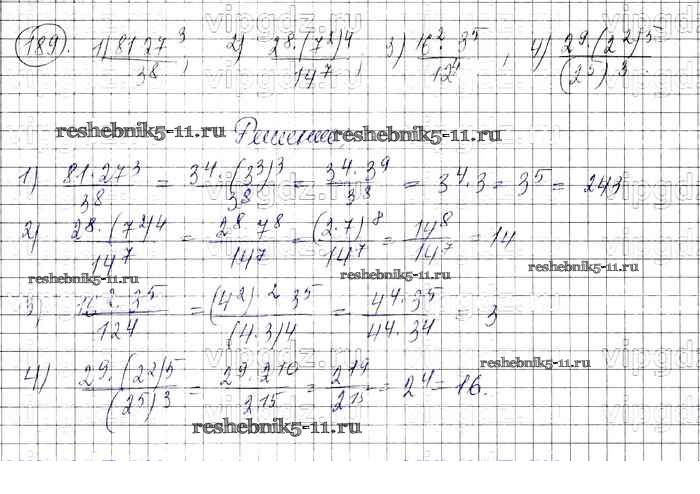 189. 1) 81·27³/3⁸, 2) 2⁸·(7²)⁴/14⁷, 3) 16²·3⁵/12⁴, 4) 2⁹·(2²)⁵/(2⁵)³.
reshebnik5-11.ru Решение. reshebnik5-11.ru
1) 81·27³/3⁸ = 3⁴·(3³)³/3⁸ = 3⁴·3⁹/3⁸ = 3⁴·3 = 3⁵ = 243
2) 2⁸·(7²)⁴/14⁷ = 2⁸·7⁸/14⁷ = (2·7)⁸/14⁷ = 14⁸/14⁷ = 14
reshebnik5-11.ru reshebnik5-11.ru reshebnik5-11.ru
3) 16²·3⁵/12⁴ = (4²)²·3⁵/(4·3)⁴ = 4⁴·3⁵/4⁴·3⁴ = 3
reshebnik5-11.ru
4) 2⁹·(2²)⁵/(2⁵)³ = 2⁹·2¹⁰/2¹⁵ = 2¹⁹/2¹⁵ = 2⁴ = 16.
reshebnik5-11.ru